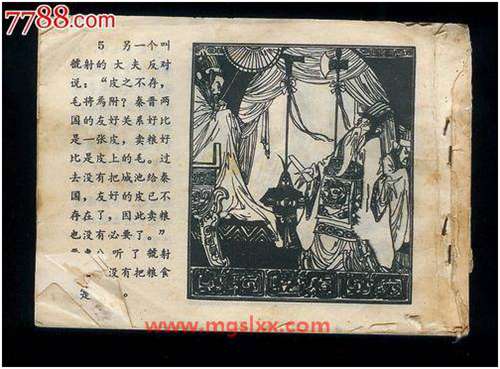 7788.com
5 另一个叫
虢射的大夫反对
说：“皮之不存，
毛将焉附？秦晋两
国的友好关系好比
是一张皮，卖粮好
比是皮上的毛。过
去没有把城池给秦
国，友好的皮已不
存在了，因此卖粮
也没有必要了。”
听了虢射
没有把粮食
。
www.mgslxx.com